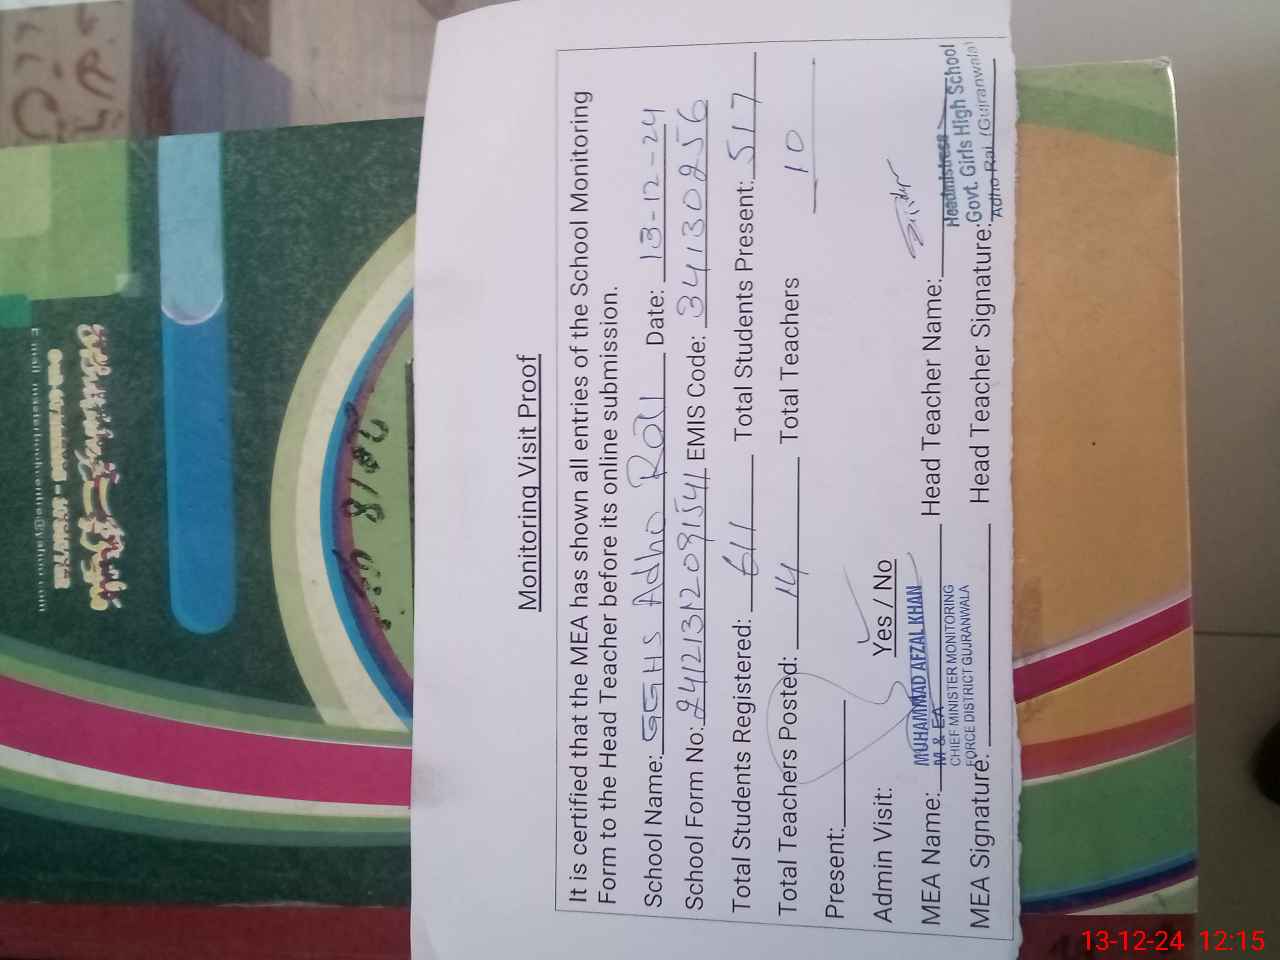 Monitoring Visit Proof
It is certified that the MEA has shown all entries of the School Monitoring
Form to the Head Teacher before its online submission.
School Name: GGHS Adho Rai Date: 13-12-24
School Form No: 24121312091541 EMIS Code: 34130256
Total Students Registered: 611 Total Students Present: 517
Total Teachers Posted: 14 Total Teachers 10
Present:
Admin Visit: Yes / No
MEA Name: MUHAMMAD AFZAL KHAN Head Teacher Name:
M & EA
CHIEF MINISTER MONITORING
FORCE DISTRICT GUJRANWALA
Headmistress
Govt. Girls High School
Adho Rai (Gujranwala)
MEA Signature: Head Teacher Signature:
13-12-24 12:15